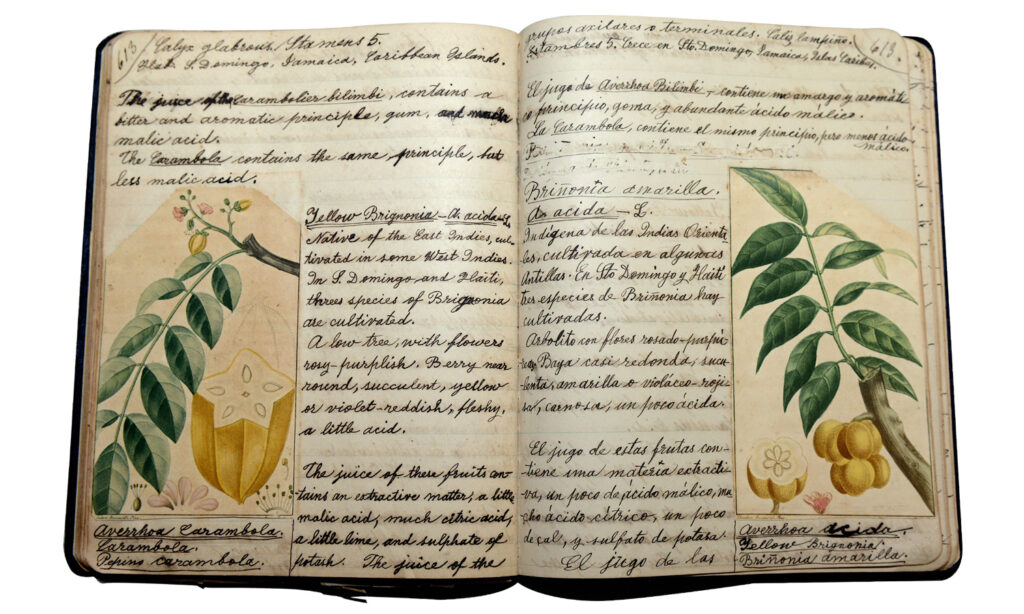 613
Calyx glabrous. Stamens 5.
Hab. S. Domingo, Jamaica, Caribbean Islands.
The juice of the Carambolier bilimbi, contains a
bitter and aromatic principle, gum, and much
malic acid.
The Carambola contains the same principle, but
less malic acid.
Yellow Brignonia – A. acida – L.
Native of the East Indies, cul-
tivated in some West Indies.
In S. Domingo and Haiti,
threes species of Brignonia
are cultivated.
A low tree, with flowers
rosy-purplish. Berry near
round, succulent, yellow
or violet-reddish, fleshy,
a little acid.
The juice of these fruits con-
tains an extractive matter, a little
malic acid, much citric acid,
a little lime, and sulphate of
potash. The juice of the
Averrhoa Carambola.
Carambola.
Pepino carambola.
grupos axilares o terminales. Caliz lampiño.
Estambres 5. Crece en Sto. Domingo, Jamaica, Islas Caribes.
613.
El jugo de Averrhoa Bilimbi, contiene un amargo y aromáti-
co principio, goma, y abundante ácido málico.
La Carambola, contiene el mismo principio, pero menos ácido
málico.
Briñonia amarilla.
A. acida – L.
Indígena de las Indias Orienta-
les, cultivada en algunas
Antillas. En Sto Domingo y Haití
tres especies de Briñonia hay
cultivadas.
Arbolito con flores rosado-purpú-
reas. Baya casi redonda, sucu-
lenta, amarilla o violáceo-roji-
sa, carnosa, un poco ácida.
El jugo de estas frutas con-
tiene una materia extracti-
va, un poco de ácido málico, mu-
cho ácido cítrico, un poco
de cal, y sulfato de potasa.
El jugo de las
Averrhoa acida
Yellow Brignonia
Briñonia amarilla.